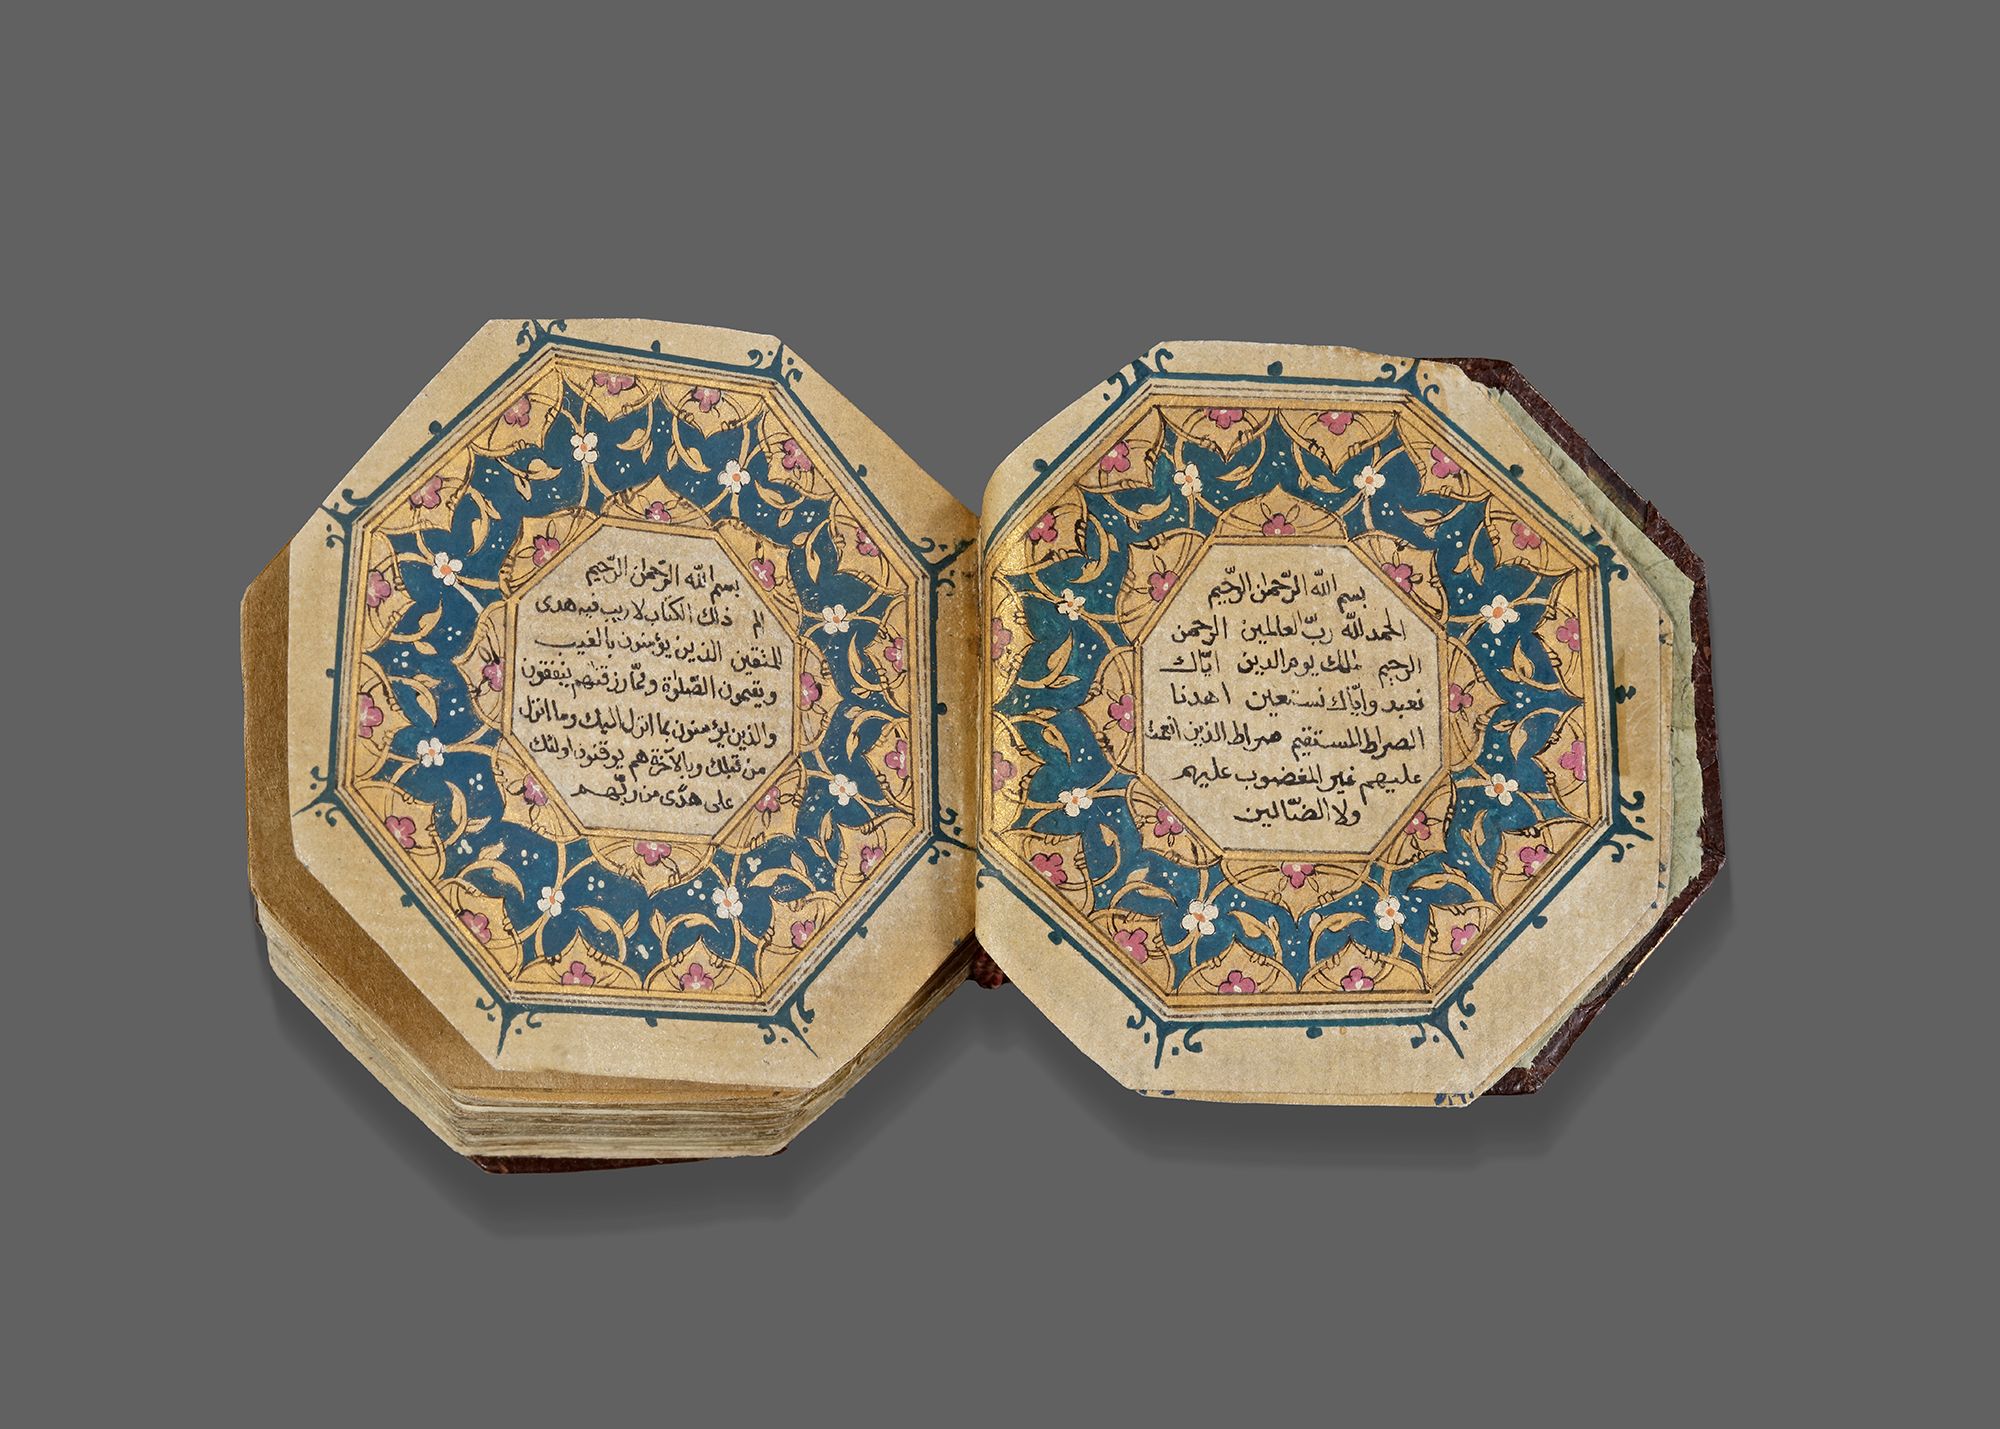 بسم الله الرّحمٰن الرّحيم
الحمد لله ربّ العالمين الرحمن
الرحيم الملك يوم الدين ايّاك
نعبد وايّاك نستعين اهدنا
الصراط المستقيم صراط الذين انعمت
عليهم غير المغضوب عليهم
ولا الضّالين
بسم الله الرّحمٰن الرّحيم
الم ذلك الكتاب لا ريب فيه هدى
للمتقين الذين يؤمنون بالغيب
ويقيمون الصّلوة وممّا رزقنٰهم ينفقون
والذين يؤمنون بما انزل اليك وما انزل
من قبلك وبالآخرة هم يوقنون اولئك
على هدًى من ربّهم